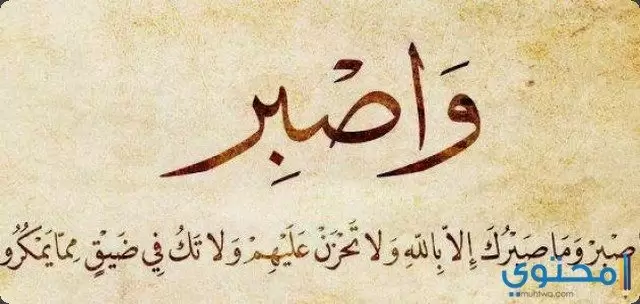 وَاصْبِر
صْبِرْ وَمَا صَبْرُكَ إِلاَّ بِاللّهِ وَلاَ تَحْزَنْ عَلَيْهِمْ وَلاَ تَكُ فِي ضَيْقٍ مِمَّا يَمْكُرُو
محتوى
muhtwa.com